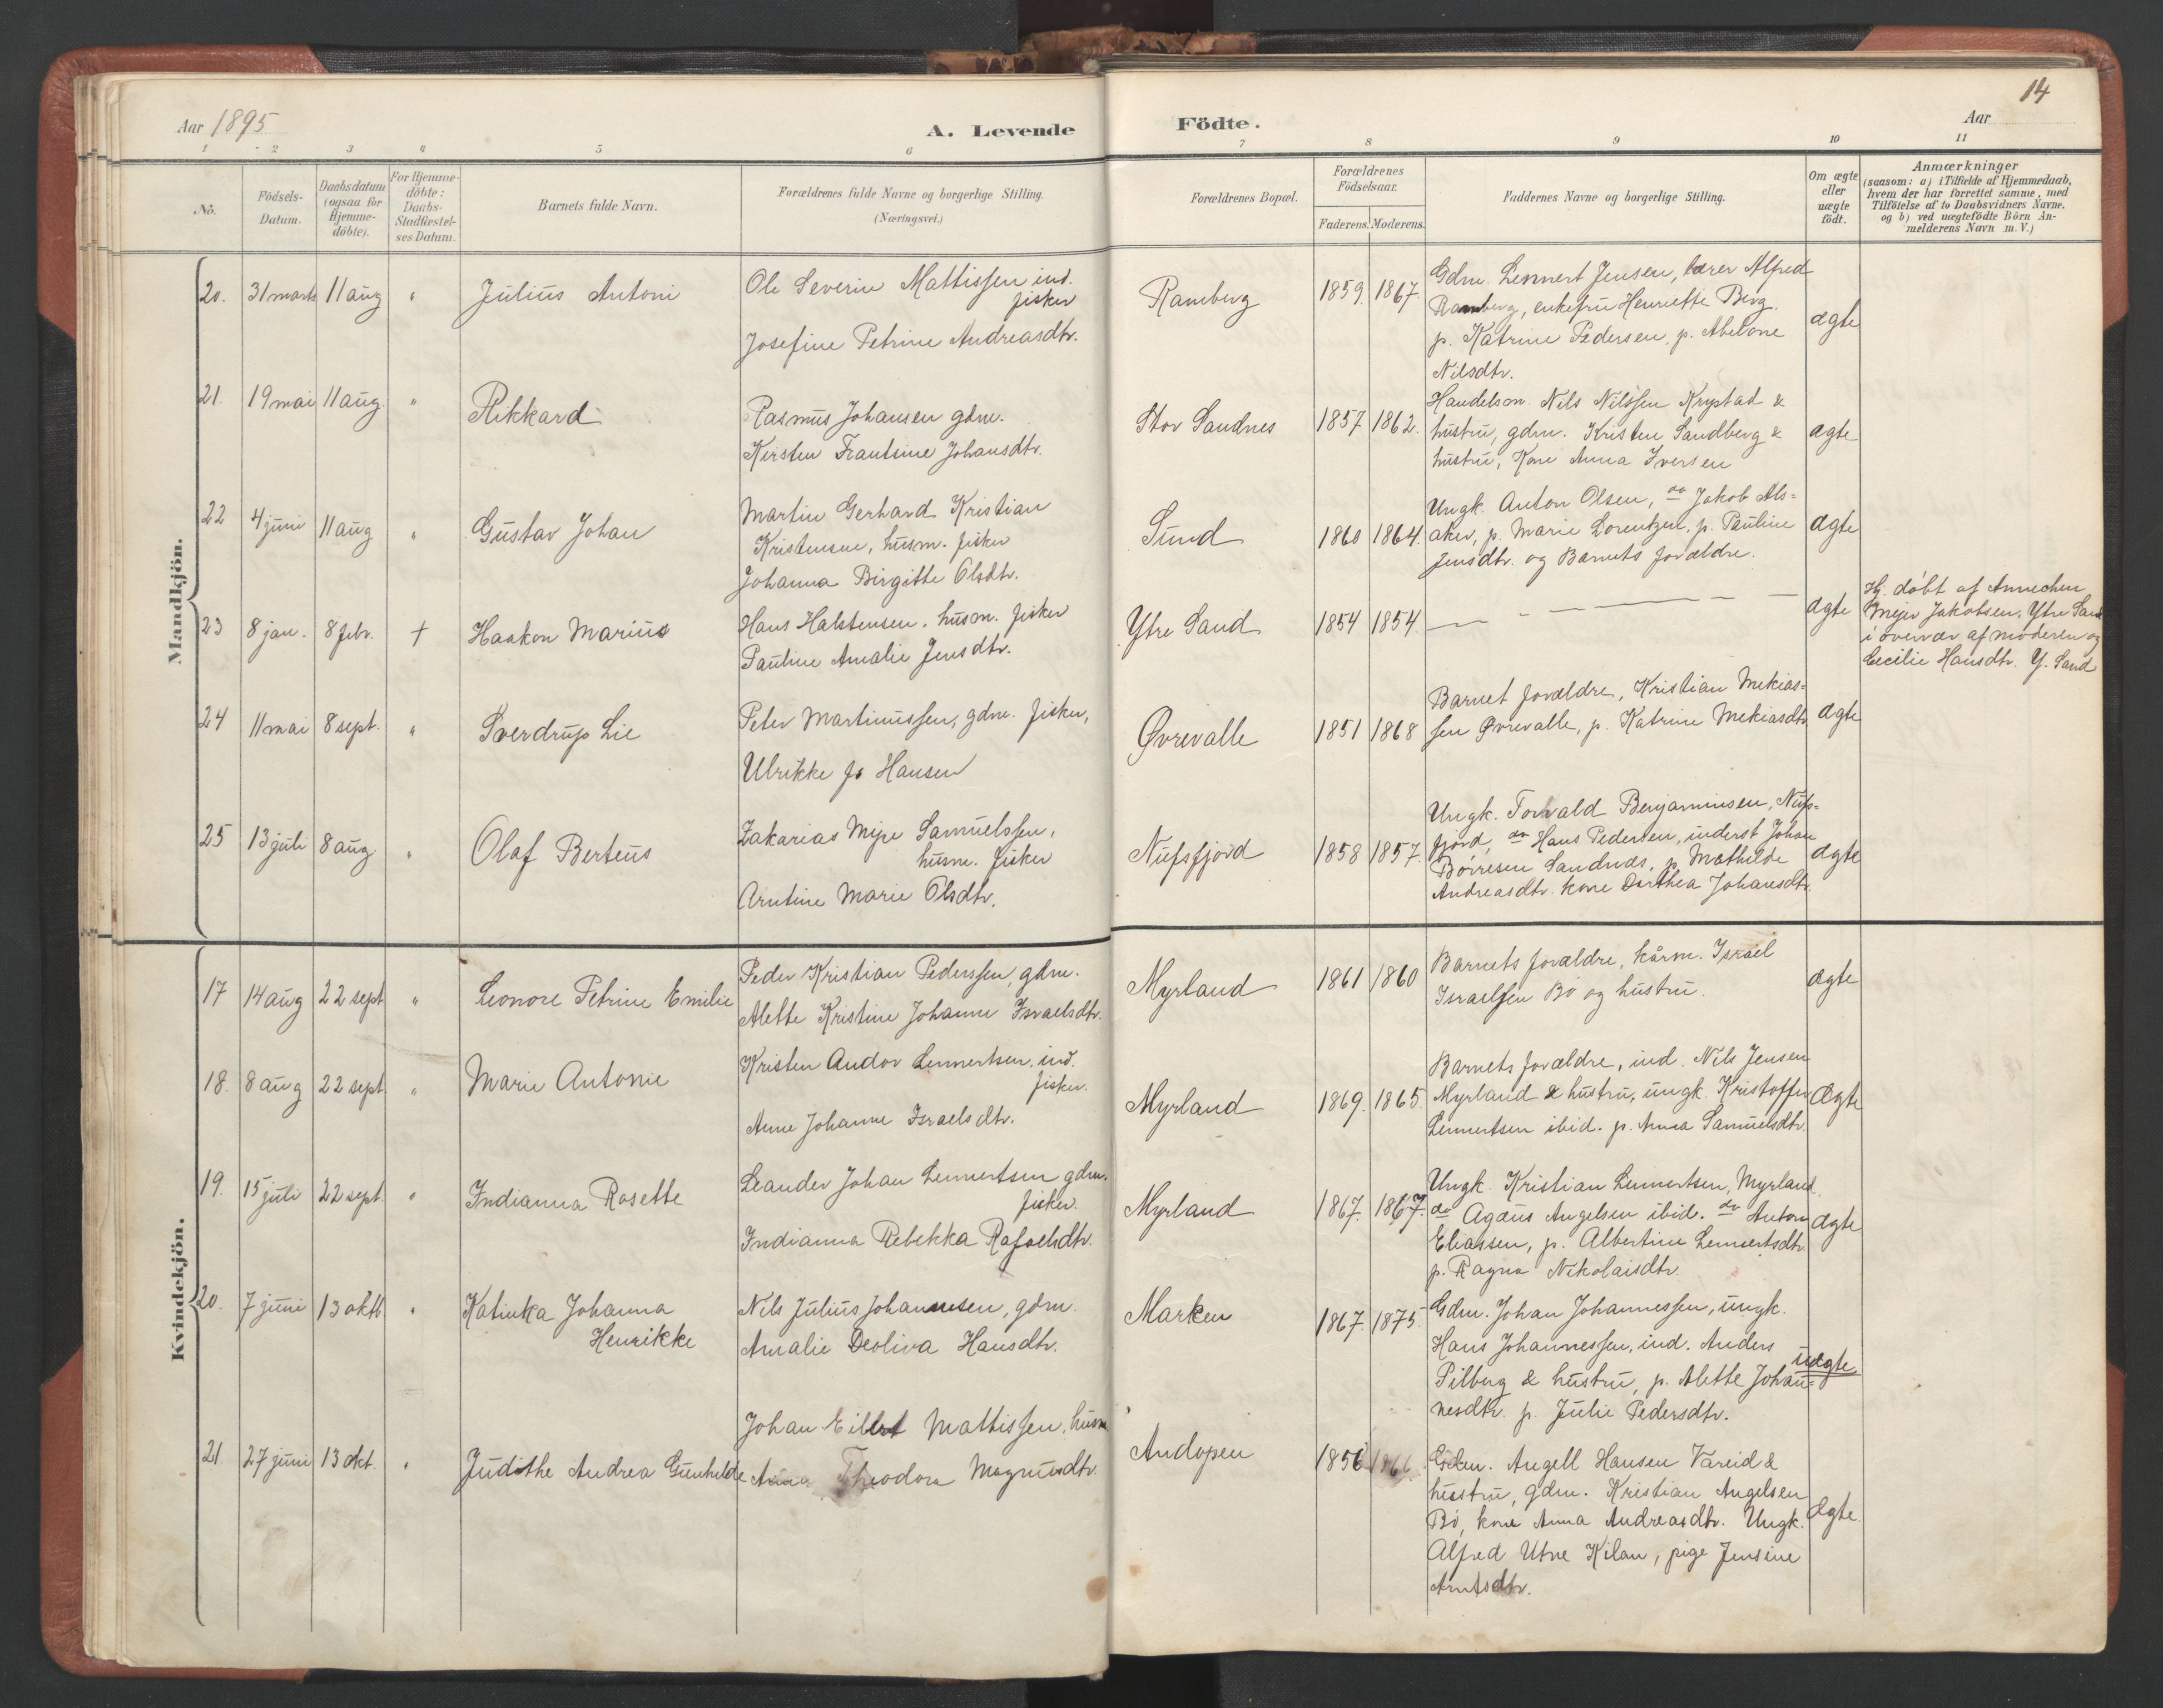 14
Aar 1895
A. Levende
Födte.
Aar
1 2 3 4 5 6 7 8 9 10 11
No.
Födsels-
Datum.
Daabsdatum
(ogsaa for
Hjemme-
döbte).
For Hjemme-
döbte:
Daabs-
Stadfæstel-
ses Datum.
Barnets fulde Navn.
Forældrenes fulde Navne og borgerlige Stilling.
(Næringsvei.)
Forældrenes Bopæl.
Forældrenes
Födselsaar.
Faderens. Moderens.
Faddernes Navne og borgerlige Stilling.
Om ægte
eller
uægte
födt.
Anmærkninger
(saasom: a) i Tilfælde af Hjemmedaab,
hvem der har forrettet samme, med
Tilföielse af to Daabsvidners Navne.
og b) ved uægtefödte Börn An-
melderens Navn m. V.)
Mandkjön.
20. 31 marts 11 aug " Julius Antoni
Ole Severin Mattissen ind.
fisker
Josefine Petrine Andreasdtr.
Ramberg 1859. 1867.
Gdm. Lennert Jensen, lærer Alfred
Ramberg, enkefru Henriette Berg.
p. Katrine Pedersen, p. Abelone
Nilsdtr.
ægte
21. 19 mai 11 aug. " Rikkard
Rasmus Johansen gdm.
Kirsten Frantsine Johansdtr.
Stor Sandnes 1857 1862.
Handelsm. Nils Nilssen Krystad &
hustru, gdm. Kristen Sandberg &
hustru, Kone Anna Iversen
ægte
22 4 juni 11 aug " Gustav Johan
Martin Gerhard Kristian
Kristensen, husm. fisker
Johanna Birgitte Olsdtr.
Sund 1860 1864.
Ungk. Anton Olsen, do Jakob Als=
aker, p. Marie Lorentzen, p. Pauline
Jensdtr. og Barnets forældre.
ægte
23 8 jan. 8 febr. † Haakon Marius
Hans Halstensen, husm. fisker
Pauline Amalie Jensdtr.
Ytre Sand 1854 1854.
— — — — —
ægte
Hj. døbt af Annechen
Mejer Jakobsen, Ytre Sand
i overvær af moderen og
Cecilie Hansdtr. Y. Sand
24 11 mai 8 sept. " Sverdrup Lie
Peter Martinussen, gdm. fisker,
Ulrikke Hansen
Øvrevalle 1851 1868
Barnet forældre, Kristian Mekias=
sen Øvrevalle, p. Katrine Mekiasdtr
ægte
25 13 juli 8 aug. " Olaf Berteus
Zakarias Mejer Samuelssen,
husm. fisker
Arntine Marie Olsdtr.
Nufsfjord 1858 1857.
Ungk. Torvald Benjaminsen, Nufs=
fjord, do Hans Pedersen, inderst Johan
Børresen Sandnes, p. Mathilde
Andreasdtr. kone Dorthea Johansdtr.
ægte
Kvindekjön.
17 14 aug 22 sept " Leonore Petrine Emilie
Peder Kristian Pederssen, gdm.
Alette Kristine Johanne Israelsdtr.
Myrland 1861 1860
Barnets forældre, kårm. Israel
Israelssen Bø og hustru.
ægte
18. 8 aug 22 sept " Marie Antonie
Kristen Andor Lennertsen, ind.
fisker.
Anne Johanne Israelsdtr.
Myrland 1869. 1865.
Barnets forældre, ind. Nils Jensen
Myrland & hustru, ungk. Kristoffer
Lennertsen ibid. p. Anna Samuelsdtr.
Ægte
19. 15 juli 22 sept. " Indianna Rosette
Leander Johan Lennertsen gdm.
fisker.
Indianna Rebekka Rafaelsdtr.
Myrland 1867. 1867.
Ungk. Kristian Lennertsen, Myrland
do Agæus Angelsen ibid. do Anton
Eliassen, p. Albertine Lennertsdtr.
p. Ragna Nikolaisdtr.
ægte
20. 7 juni 13 oktb " Katinka Johanna
Henrikke
Nils Julius Johannesen, gdm.
Amalie Deoliva Hansdtr.
Marken 1867. 1875.
Gdm. Johan Johannessen, ungk.
Hans Johannessen, ind. Anders
Pilberg & hustru, p. Alette Johan=
nesdtr. p. Julie Pedersdtr.
uægte
21. 27 juni 13 okt. " Judithe Andrea Gunhilde
Johan Eilert Mattissen, husm
Anna Theodora Magnusdtr.
Andopen 1856 1866.
Gdm. Angell Hansen Vareid &
hustru, gdm. Kristian Angelsen
Bø, kone Anna Andreasdtr. Ungk.
Alfred Utne Kilan, pige Jensine
Arntsdtr.
Ægte.